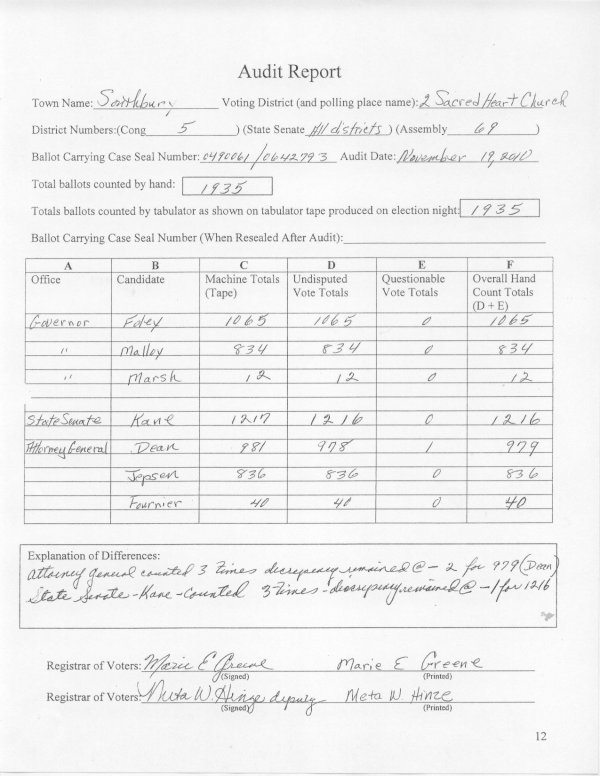 Audit Report
Town Name: Southbury Voting District (and polling place name): 2 Sacred Heart Church
District Numbers:(Cong 5 ) (State Senate All districts ) (Assembly 69 )
Ballot Carrying Case Seal Number: 0490061/0642793 Audit Date: November 19, 2010
Total ballots counted by hand: 1935
Totals ballots counted by tabulator as shown on tabulator tape produced on election night: 1935
Ballot Carrying Case Seal Number (When Resealed After Audit):
A B C D E F
Office Candidate Machine Totals Undisputed Questionable Overall Hand
(Tape) Vote Totals Vote Totals Count Totals
(D + E)
Governor Foley 1065 1065 0 1065
" Malloy 834 834 0 834
" Marsh 12 12 0 12
State Senate Kane 1217 1216 0 1216
Attorney General Dean 981 978 1 979
Jepsen 836 836 0 836
Fournier 40 40 0 40
Explanation of Differences:
Attorney General counted 3 times decrepency remained @ - 2 for 979 (Dean)
State Senate - Kane - Counted 3 times - discrepency remained @ - 1 for 1216
Registrar of Voters: Marie E Greene Marie E Greene
(Signed) (Printed)
Registrar of Voters: Meta W. Hinze deputy Meta W. Hinze
(Signed) (Printed)
12